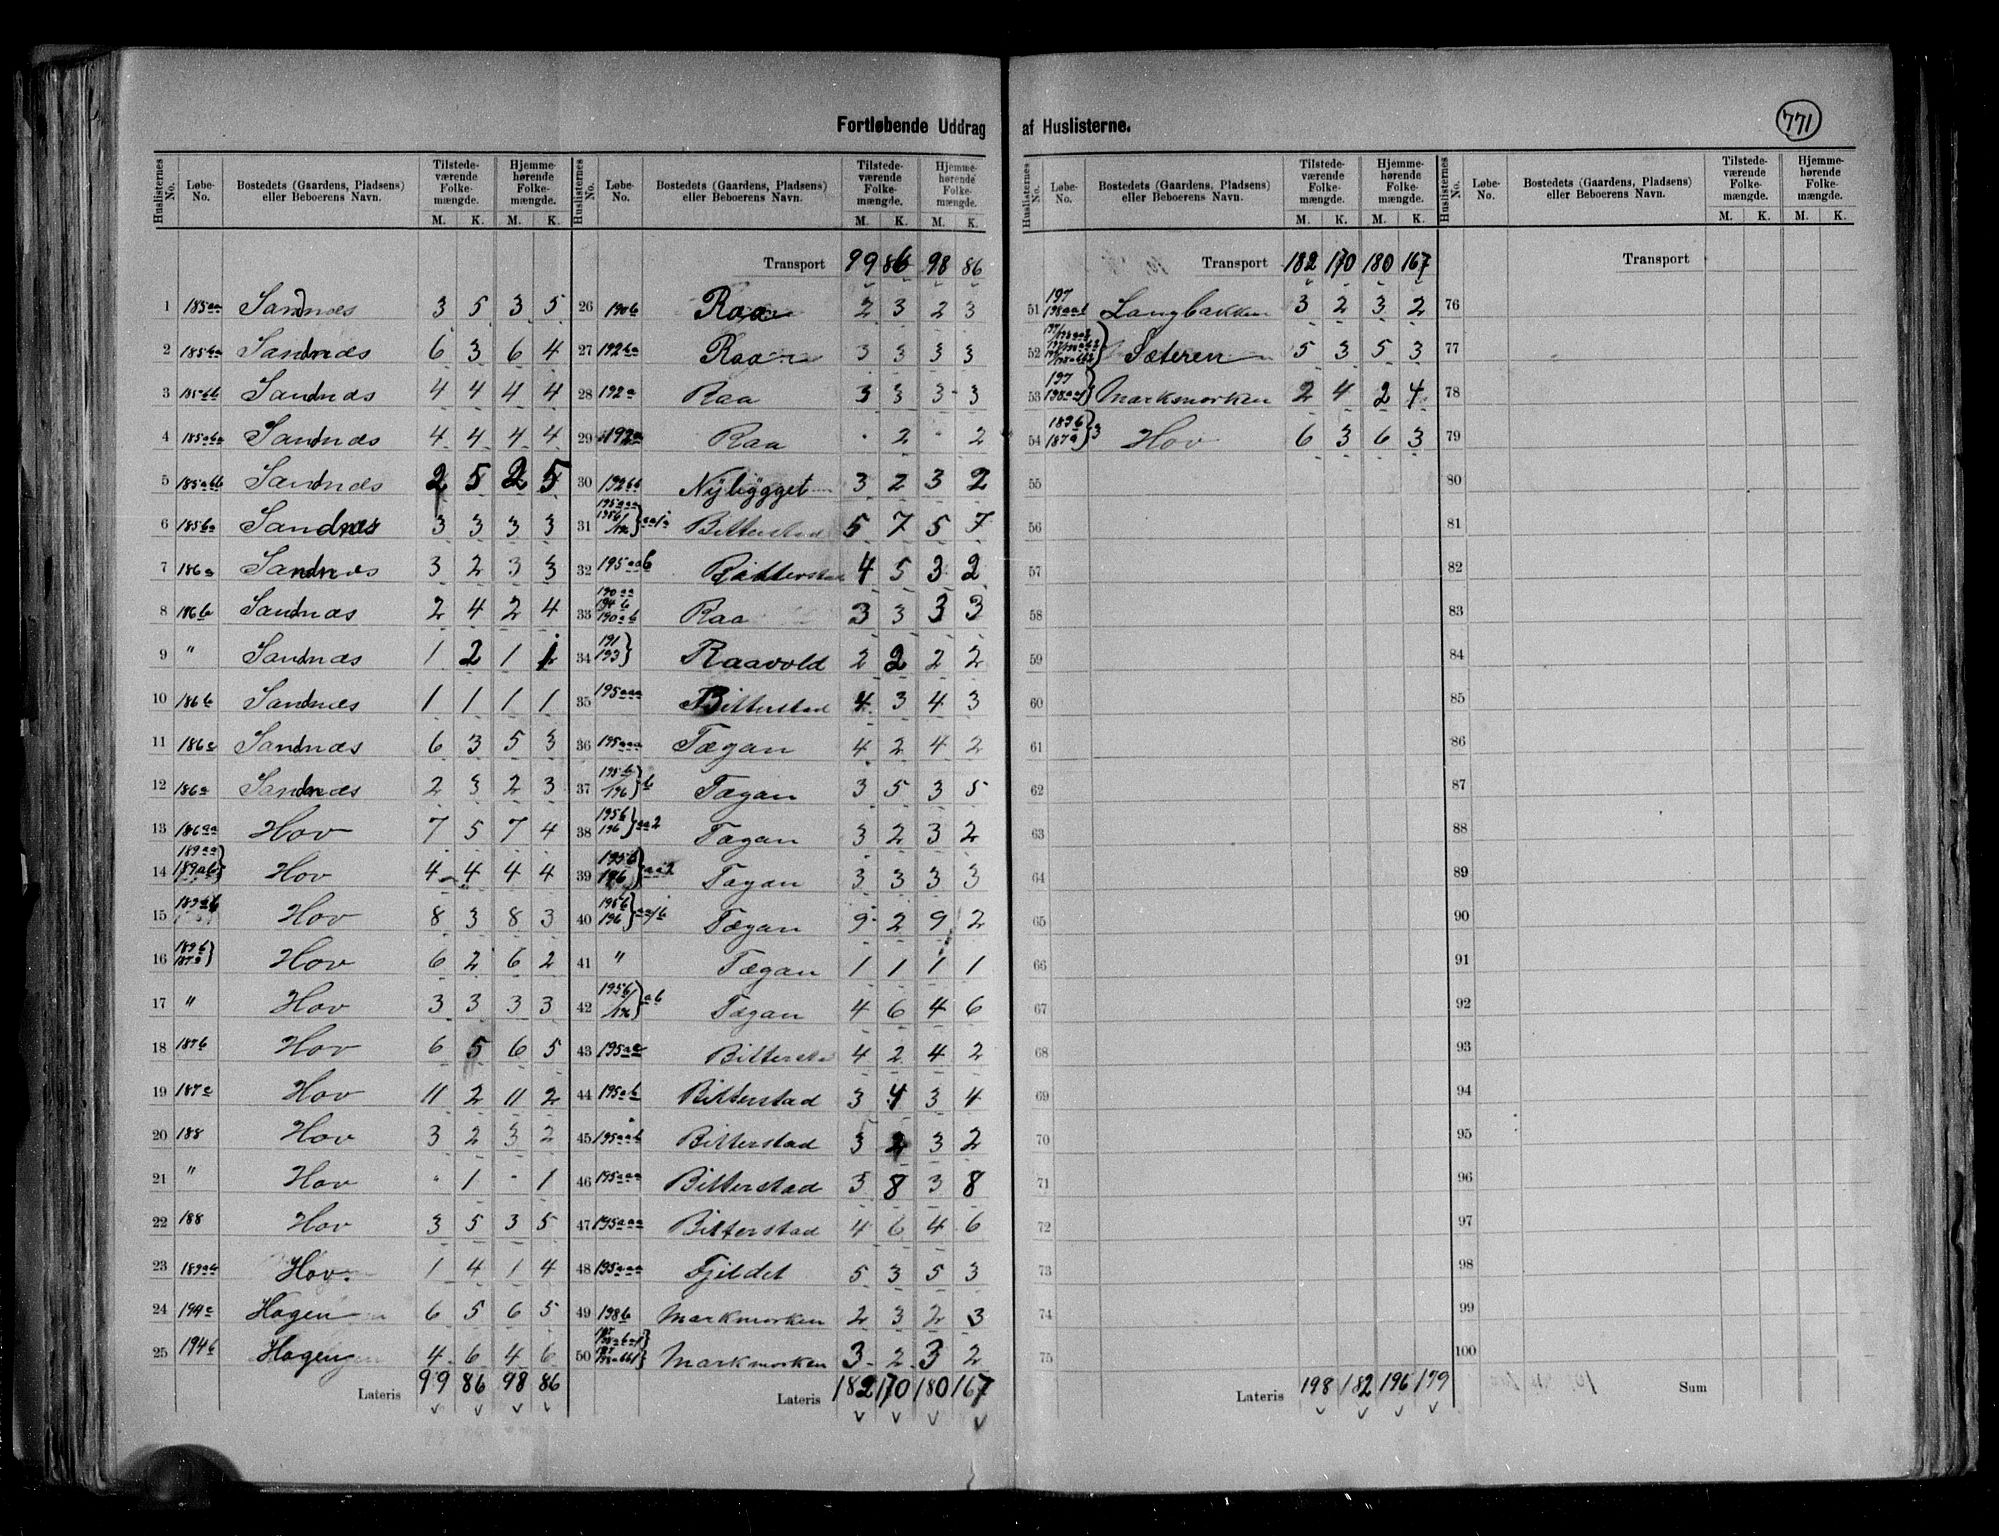 Fortløbende Uddrag af Huslisterne.
771
Huslisternes No. Løbe-No. Bostedets (Gaardens, Pladsens) eller Beboerens Navn. Tilstedeværende Folkemængde. M. K. Hjemmehørende Folkemængde. M. K.
1 185aa Sandnæs 3 5 3 5
2 185ba Sandnæs 6 3 6 4
3 Sandnæs 4 4 4 4
4 185aba Sandnæs 4 4 4 4
5 185abb Sandnæs 2 5 2 5
6 185ba Sandnæs 3 3 3 3
7 186a Sandnæs 3 2 3 3
8 186b Sandnæs 2 4 2 4
9 " Sandnæs 1 2 1 1
10 186b Sandnæs 1 1 1 1
11 186a Sandnæs 6 3 5 3
12 186a Sandnæs 2 3 2 3
13 186aa Hov 7 5 7 4
14 189aa 189ab} Hov 4 4 4 4
15 189ab Hov 8 3 8 3
16 189b 187a} Hov 6 2 6 2
17 " Hov 3 3 3 3
18 187b Hov 6 5 6 5
19 187c Hov 11 2 11 2
20 188 Hov 3 2 3 2
21 " Hov - 1 - 1
22 188 Hov 3 5 3 5
23 189ab Hov 1 4 1 4
24 194a Hagen 6 5 6 5
25 194b Hagen 4 6 4 6
Lateris 99 86 98 86
Huslisternes No. Løbe-No. Bostedets (Gaardens, Pladsens) eller Beboerens Navn. Tilstedeværende Folkemængde. M. K. Hjemmehørende Folkemængde. M. K.
Transport 99 86 98 86
26 190b Raa 2 3 2 3
27 192ba Raa 3 3 3 3
28 192a Raa 3 3 3 3
29 192a Raa - 2 - 2
30 192bb Nybygget 3 2 3 2
31 195aaa 195b /196} aa1a Bitterstad 5 7 5 7
32 195aab Bitterstad 4 5 3 2
33 190aa 194b 190ab Raa 3 3 3 3
34 191 193} Raavold 2 2 2 2
35 195aaa Bitterstad 4 3 4 3
36 195aaa Tægan 4 2 4 2
37 195b /196} b Tægan 3 5 3 5
38 195b 196} aa2 Tægan 3 2 3 2
39 195b 196} aa2 Tægan 3 3 3 3
40 195b 196} aa1b Tægan 9 2 9 2
41 " Tægan 1 1 1 1
42 195b /196} ab Tægan 4 6 4 6
43 Bitterstad 4 2 4 2
44 195ab Bitterstad 3 4 3 4
45 195aab Bitterstad 3 2 3 2
46 195aaa Bitterstad 3 8 3 8
47 195aaa Bitterstad 4 6 4 6
48 195aaa Fjeldet 5 3 5 3
49 198b Markmorken 2 3 2 3
50 Markmorken 3 2 3 2
Lateris 182 170 180 167
Huslisternes No. Løbe-No. Bostedets (Gaardens, Pladsens) eller Beboerens Navn. Tilstedeværende Folkemængde. M. K. Hjemmehørende Folkemængde. M. K.
Transport 182 170 180 167
51 197 Langbakken 3 2 3 2
52 Sæteren 5 3 5 3
53 197 Markmorken 2 4 2 4
54 189b 187a} 3 Hov 6 3 6 3
55
56
57
58
59
60
61
62
63
64
65
66
67
68
69
70
71
72
73
74
75
Lateris 198 182 196 179
Huslisternes No. Løbe-No. Bostedets (Gaardens, Pladsens) eller Beboerens Navn. Tilstedeværende Folkemængde. M. K. Hjemmehørende Folkemængde. M. K.
Transport
76
77
78
79
80
81
82
83
84
85
86
87
88
89
90
91
92
93
94
95
96
97
98
99
100
Sum